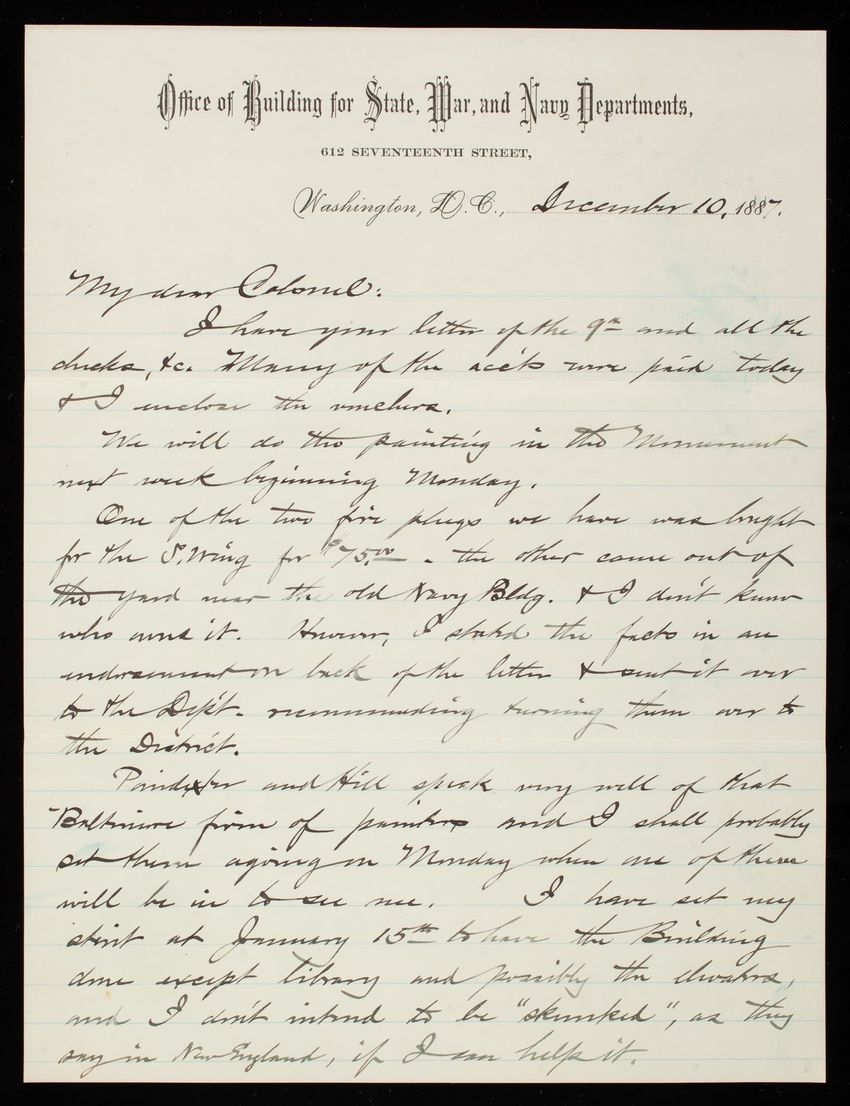 Office of Building for State, War, and Navy Departments,
612 SEVENTEENTH STREET,
Washington, D.C., December 10, 1887.
My dear Colonel:
I have your letter of the 9th and all the
checks, &c. Many of the acc'ts were paid today
& I enclose the vouchers.
We will do the painting in the Monument
next week beginning Monday.
One of the two fire plugs we have was bought
for the S. Wing for $75.00 - the other came out of
the yard near the old Navy Bldg. & I don't know
who owns it. However, I stated the facts in an
endorsement on back of the letter & sent it over
to the Dep't. recommending turning them over to
the District.
Poindexter and Hill speak very well of that
Baltimore firm of painters and I shall probably
set them agoing on Monday when one of them
will be in to see me. I have set my
stint at January 15th to have the Building
done except library and possibly the elevators,
and I don't intend to be "skunked", as they
say in New England, if I can help it.